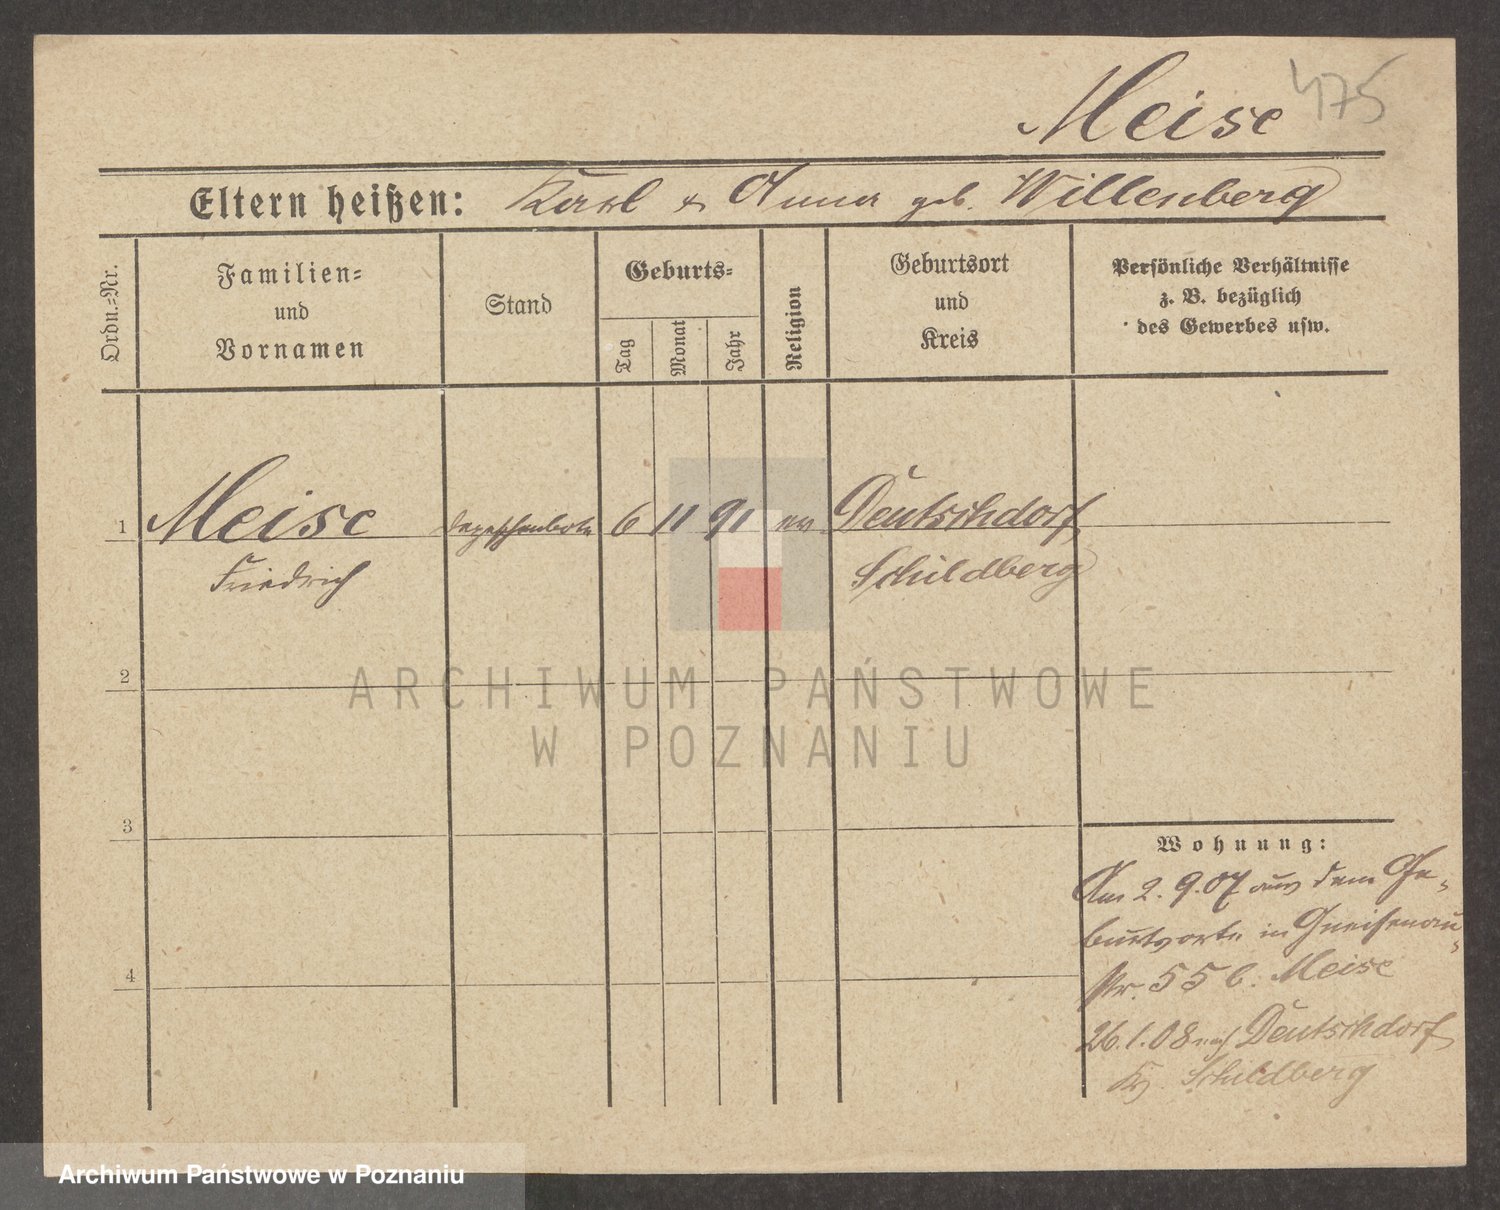 Meise 475
Eltern heißen: Karl & Anna geb. Willenberg
Ordn.=Nr.
Familien=
und
Vornamen
Stand
Geburts=
Tag
Monat
Jahr
Religion
Geburtsort
und
Kreis
Persönliche Verhältnisse
z. B. bezüglich
des Gewerbes usw.
1 Meise Depeschenbote 6 11 91 ev Deutschdorf
Friedrich Schildberg
2
3
4
Wohnung:
Am 2.9.07 aus dem Ge-
burtsorte in Gneisenau-
str. 55 b. Meise
26.1.08 nach Deutschdorf
Kr. Schildberg
ARCHIWUM PAŃSTWOWE
W POZNANIU
Archiwum Państwowe w Poznaniu